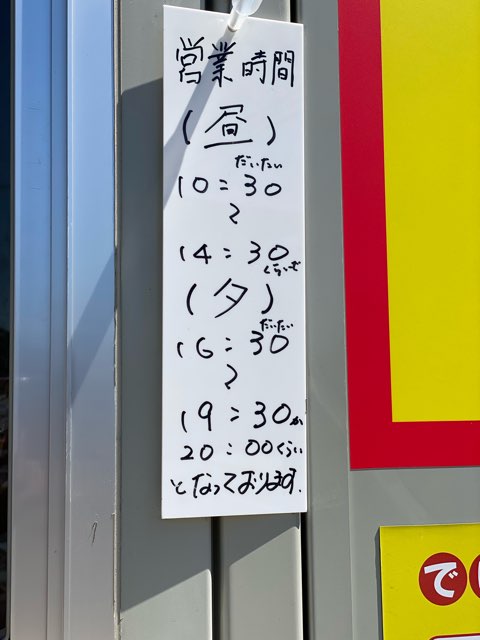 営業時間
(昼)
だいたい
10:30
〜
14:30
くらいで
(夕)
だいたい
16:30
〜
19:30か
20:00くらい
となっております.
で